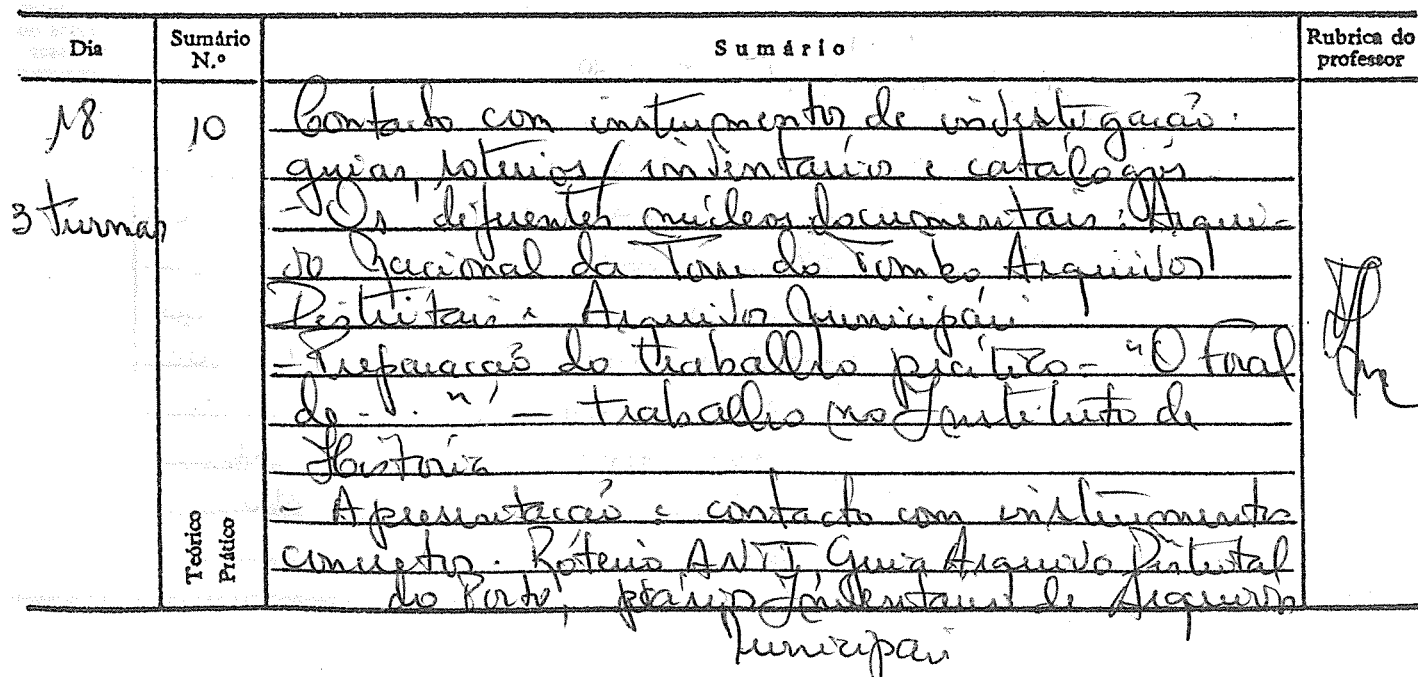 Dia Sumário N.º Sumário Rubrica do professor
18 10 Contacto com instrumentos de investigação:
guias, roteiros, inventários e catálogos
3 turmas - Os diferentes núcleos documentais: Arqui-
vo Nacional da Torre do Tombo, Arquivos
Distritais e Arquivos Municipais
- Preparação do trabalho prático - "O Foral
de ..." - trabalho no Instituto de
História
- Apresentação e contacto com instrumentos
concretos. Roteiro ANTT, Guia Arquivo Distrital
do Porto, vários Inventários de Arquivos
Municipais
Teórico
Prático